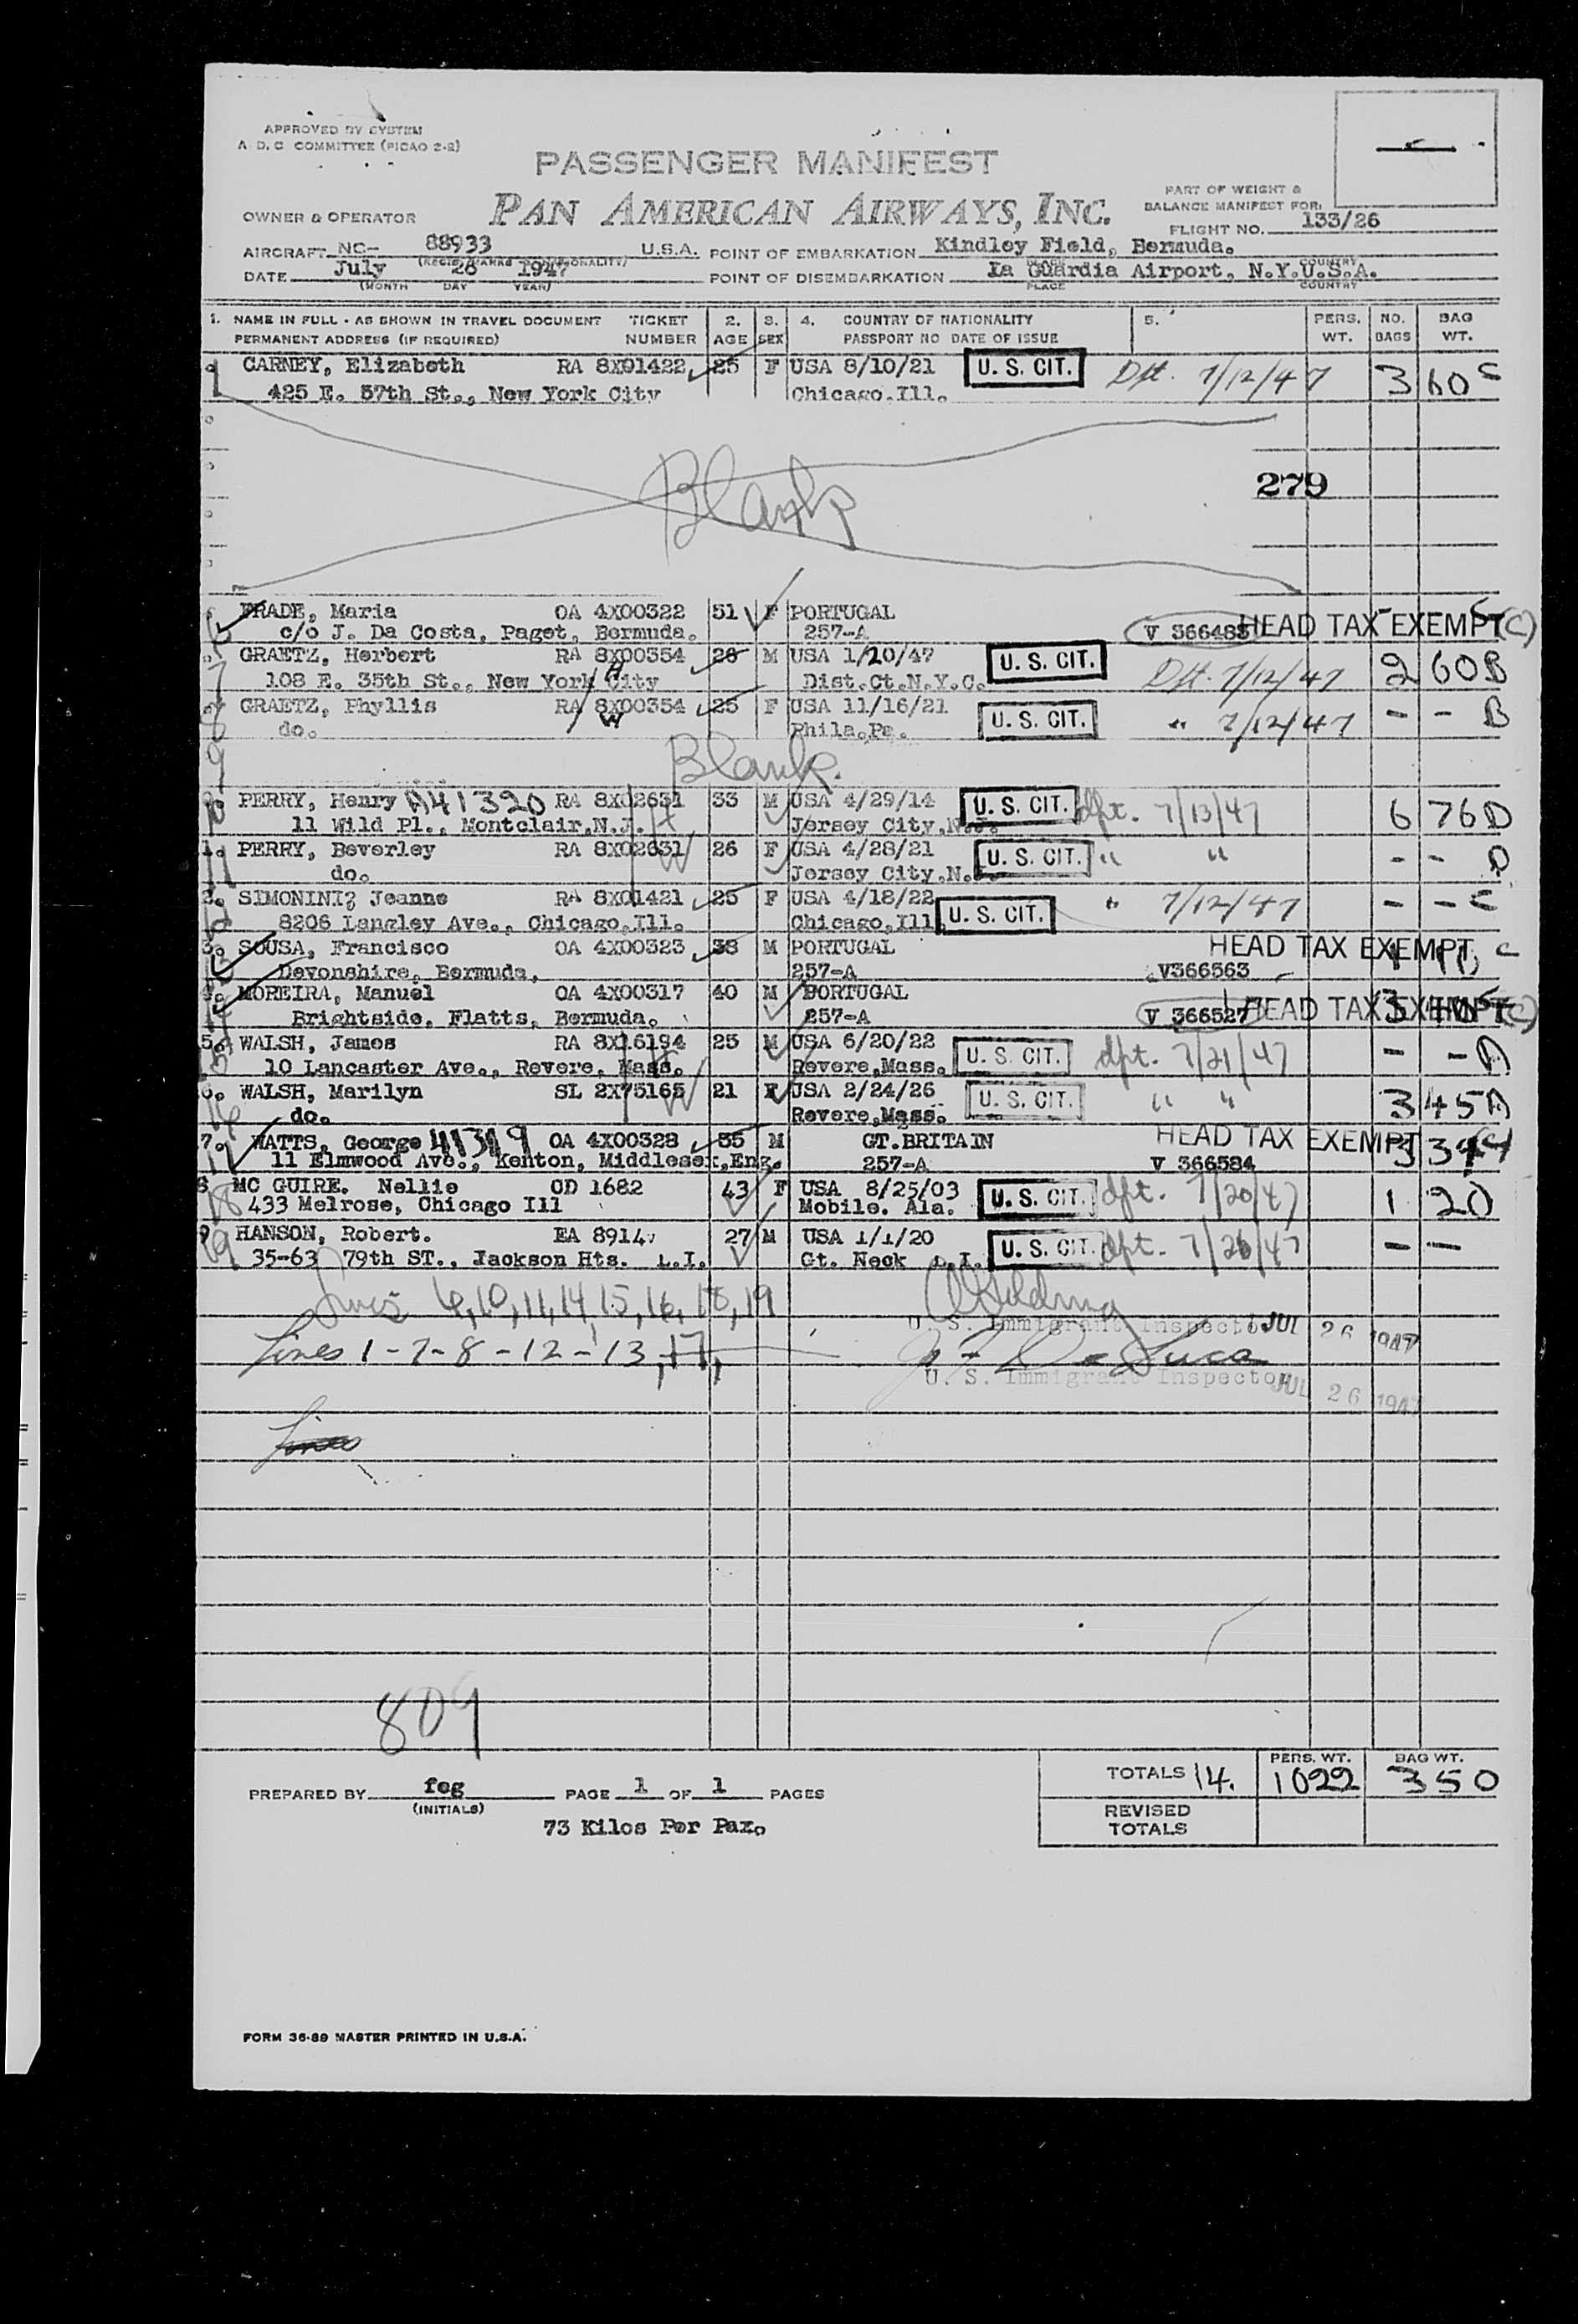 APPROVED BY SYSTEM
A. D. C. COMMITTEE (PICAO 2-2)
PASSENGER MANIFEST
PAN AMERICAN AIRWAYS, INC.
PART OF WEIGHT &
BALANCE MANIFEST FOR:
OWNER & OPERATOR
FLIGHT NO. 133/26
AIRCRAFT NC- 88933 U.S.A. POINT OF EMBARKATION Kindley Field, Bermuda.
DATE July 26 1947 POINT OF DISEMBARKATION La Guardia Airport, N.Y.U.S.A.
(MONTH DAY YEAR) PLACE COUNTRY
1. NAME IN FULL - AS SHOWN IN TRAVEL DOCUMENT TICKET 2. 3. 4. COUNTRY OF NATIONALITY 5. PERS. NO. BAG
PERMANENT ADDRESS (IF REQUIRED) NUMBER AGE SEX PASSPORT NO DATE OF ISSUE WT. BAGS WT.
1 CARNEY, Elizabeth RA 8X01422 25 F USA 8/10/21 U. S. CIT. Dpt. 7/12/47 3 60 C
425 E. 57th St., New York City Chicago.Ill.
Blank
279
FRADE, Maria OA 4X00322 51 F PORTUGAL
c/o J. Da Costa, Paget, Bermuda. 257-A V 366483 HEAD TAX EXEMPT (C)
7 GRAETZ, Herbert RA 8X00354 26 M USA 1/20/47 U. S. CIT. Dpt. 7/12/47 2 60 B
108 E. 35th St., New York City Dist.Ct.N.Y.C.
8 GRAETZ, Phyllis RA 8X00354 25 F USA 11/16/21 U. S. CIT. " 7/12/47 - - B
do. Phila.Pa.
9 Blank.
10 PERRY, Henry A41320 RA 8X02631 33 M USA 4/29/14 U. S. CIT. dpt. 7/13/47 6 76 D
11 Wild Pl., Montclair,N.J. Jersey City,N.J.
11 PERRY, Beverley RA 8X02631 26 F USA 4/28/21 U. S. CIT. " " - - D
do. Jersey City,N.J.
SIMONINI, Jeanne RA 8X01421 25 F USA 4/18/22 U. S. CIT. " 7/12/47 - - C
8206 Langley Ave., Chicago.Ill. Chicago.Ill
SOUSA, Francisco OA 4X00323 38 M PORTUGAL HEAD TAX EXEMPT C
Devonshire, Bermuda. 257-A V366563
MOREIRA, Manuel OA 4X00317 40 M PORTUGAL
Brightside, Flatts, Bermuda. 257-A V 366527 HEAD TAX EXEMPT (C)
15 WALSH, James RA 8X16194 25 M USA 6/20/22 U. S. CIT. dpt. 7/21/47 - - A
10 Lancaster Ave., Revere, Mass. Revere,Mass.
16 WALSH, Marilyn SL 2X75165 21 F USA 2/24/26 U. S. CIT. " " 3 45 A
do. Revere,Mass.
17 WATTS, George 41319 OA 4X00328 55 M GT.BRITAIN HEAD TAX EXEMPT
11 Elmwood Ave., Kenton, Middlesex,Eng. 257-A V 366584
18 MC GUIRE. Nellie OD 1682 43 F USA 8/25/03 U. S. CIT. dpt. 7/20/47 1 20
433 Melrose, Chicago Ill Mobile. Ala.
19 HANSON, Robert. EA 8914 27 M USA 1/1/20 U. S. CIT. dpt. 7/26/47 - -
35-63 79th ST., Jackson Hts. L.I. Gt. Neck L.I.
Lines 6,10,11,14,15,16,18,19
U. S. Immigrant Inspector JUL 26 1947
Lines 1-7-8-12-13,17,
U. S. Immigrant Inspector JUL 26 1947
Lines
809
TOTALS 14. PERS. WT. 1022 BAG WT. 350
PREPARED BY feg PAGE 1 OF 1 PAGES
(INITIALS)
REVISED
TOTALS
73 Kilos Per Pax.
FORM 36-89 MASTER PRINTED IN U.S.A.